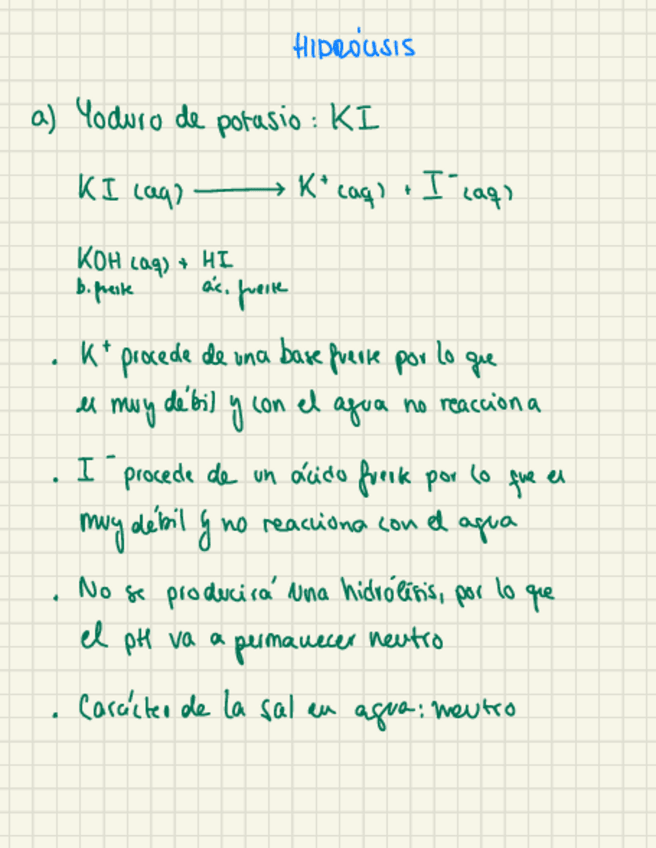 HIDRÓLISIS
a) Yoduro de potasio: KI
KI (aq) ⟶ K⁺ (aq) + I⁻ (aq)
KOH (aq) + HI
b. fuerte ác. fuerte
. K⁺ procede de una base fuerte por lo que
es muy débil y con el agua no reacciona
. I⁻ procede de un ácido fuerte por lo que es
muy débil y no reacciona con el agua
. No se producirá una hidrólisis, por lo que
el pH va a permanecer neutro
. Carácter de la sal en agua: neutro